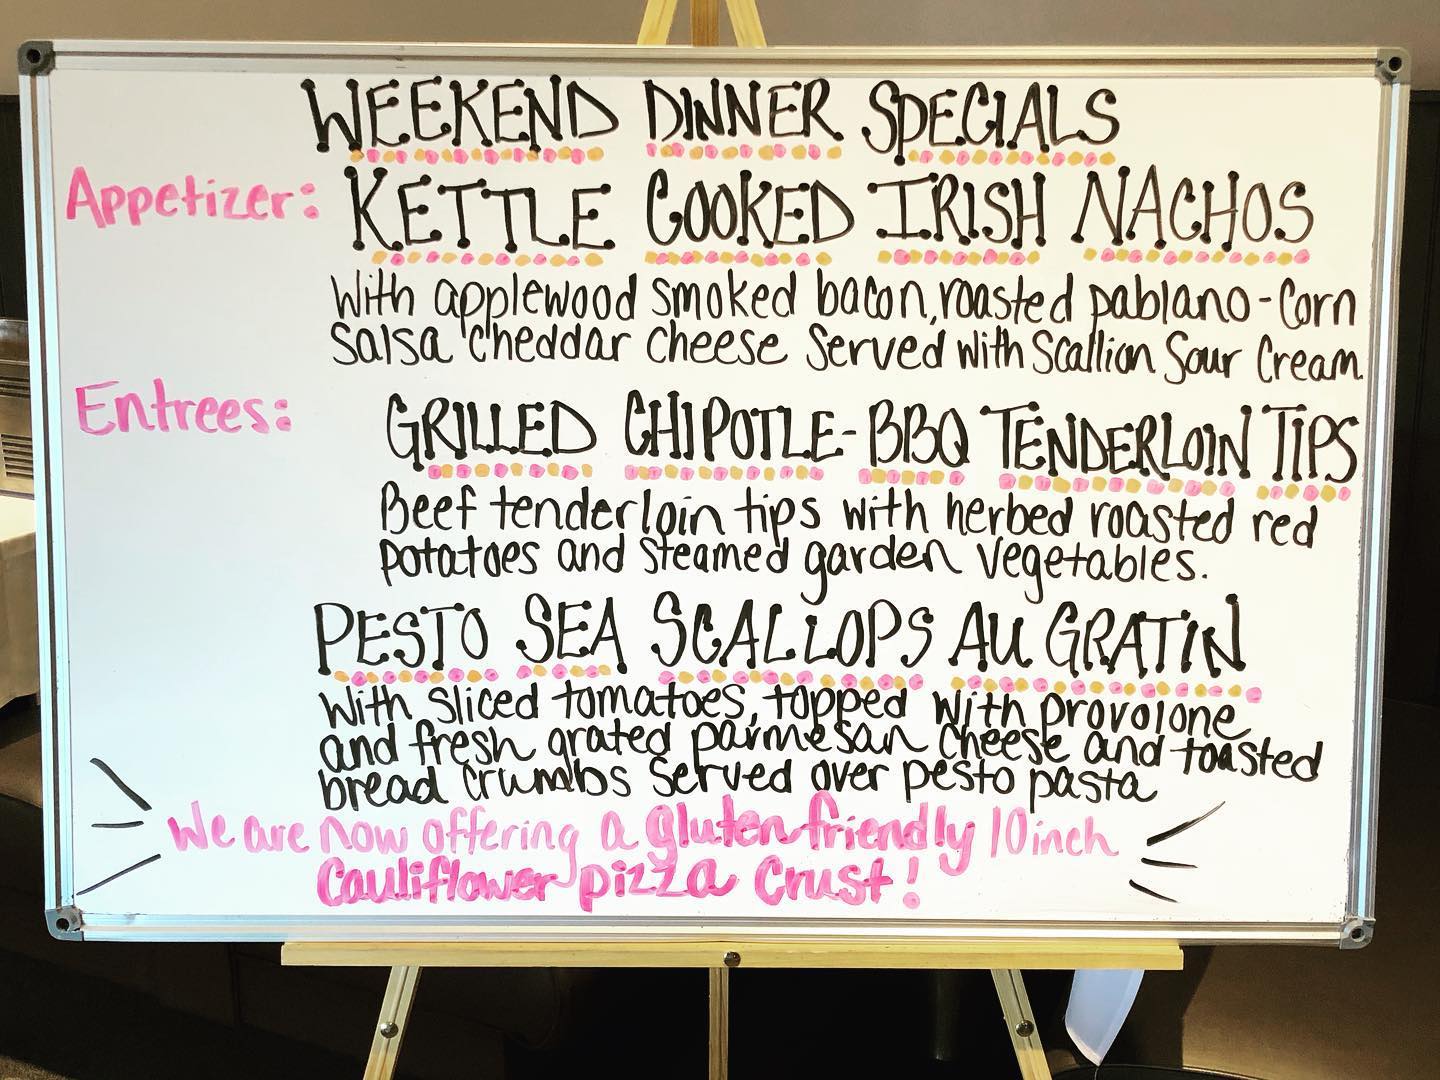 WEEKEND DINNER SPECIALS
Appetizer: KETTLE COOKED IRISH NACHOS
With applewood smoked bacon, roasted pablano-Corn
Salsa cheddar cheese served with Scallion Sour Cream
Entrees: GRILLED CHIPOTLE-BBQ TENDERLOIN TIPS
Beef tenderloin tips with herbed roasted red
potatoes and steamed garden vegetables.
PESTO SEA SCALLOPS AU GRATIN
With sliced tomatoes, topped with provolone
and fresh grated parmesan cheese and toasted
bread crumbs served over pesto pasta
We are now offering a gluten friendly 10 inch
Cauliflower pizza Crust!